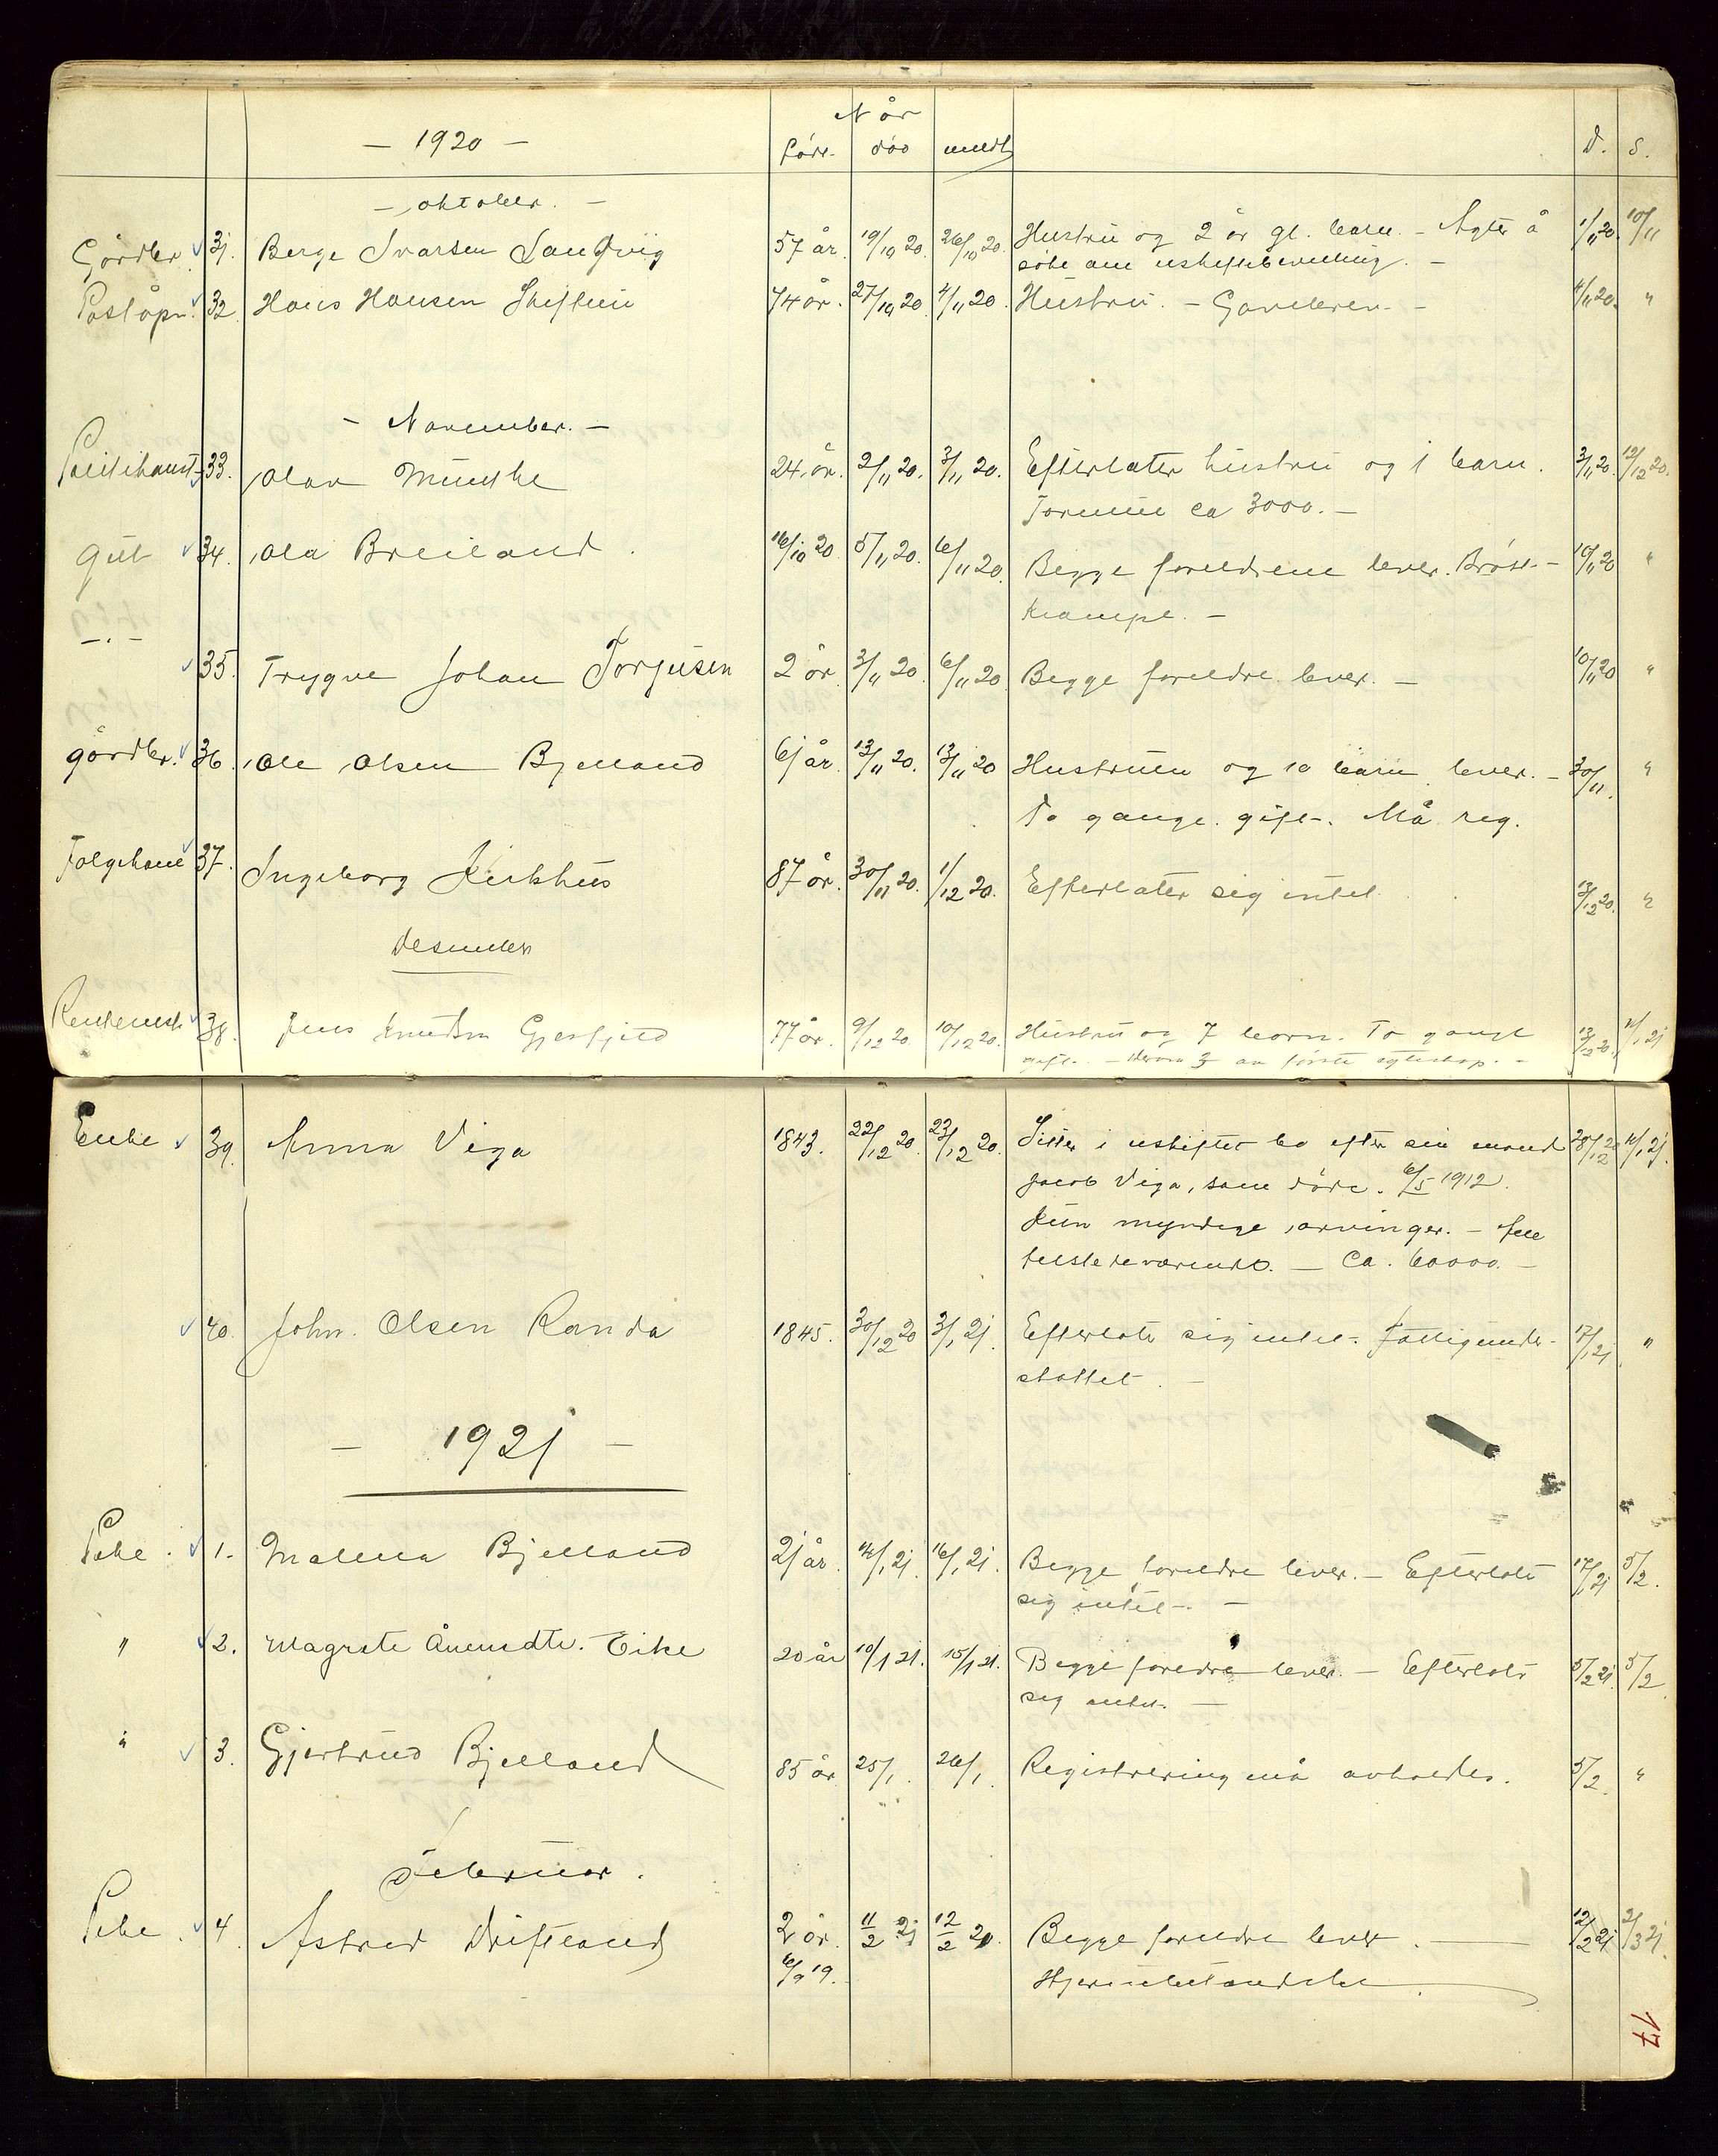 Når
- 1920 - född. död meldt D. S.
- Oktober. -
Gårdbr. 31. Berge Ivarsen Sandvig 57 år. 19/10 20. 26/10 20. Hustru og 2 år gl. barn. - Agter å 1/11 20. 10/11
söke om uskiftebevilling. -
Poståpn. 32. Hans Hansen 74 år. 27/10 20. 4/11 20. Hustru. - 4/11 20. "
- November. -
33. Olav Munthe 24. år. 2/11 20. 3/11 20. Efterlater hustru og 1 barn. 3/11 20. 12/12 20.
Formue ca 3000. -
Gut 34. Ola Breiland. 16/10 20 5/11 20. 6/11 20. Begge foreldrene lever. Bröst-
krampe. - 10/11 20 "
-"- 35. Trygve Johan Torjusen 2 år 3/11 20. 6/11 20. Begge foreldre lever. - 10/11 20 "
gårdbr. 36. Ole Olsen Bjelland 61 år 13/11 20. 13/11 20 Hustruen og 10 barn lever. - 30/11. "
To gange gift. Må reg.
37. Ingeborg Kirkhus 87 år. 30/11 20. 1/12 20. Efterlater sig intet. 13/12 20. "
Desember
38. Jens Knudsen Gjesfjeld 77 år. 9/12 20. 10/12 20. Hustru og 7 barn. To gange 13/12 20. 11/1 21
gift. - Derav 3 av förste egteskap. -
Enke 39. Anna Viga 1843. 22/12 20. 23/12 20. Sitter i uskiftet bo efter sin mand 28/12 20 11/1 21.
Jacob Viga, som döde. 6/5 1912.
Kun myndige arvinger. - Alle
tilstedeværende. - Ca. 60000. -
40. John. Olsen Randa 1845. 30/12 20 3/1 21. Efterlater sig intet. Fattigunder- 17/1 21 "
stöttet. -
- 1921 -
Pike. 1. Malena Bjelland 21 år. 14/1 21. 16/1 21. Begge foreldre lever. - Efterlot 17/1 21 5/2.
sig intet. -
" 2. Magrete Ånensdtr. Eike 20 år 10/1 21. 15/1 21. Begge foreldre lever. - Efterlot 5/2 21. 5/2
sig intet. -
" 3. Gjertrud Bjelland 85 år 25/1. 26/1. Registrering må avholdes. 5/2. "
Februar.
Pike. 4. Astrid Driftland 2 år. 11/2 21 12/2 21. Begge foreldre lever. 12/2 21 2/3 21.
6/9 19. Hjernebetændelse.
17